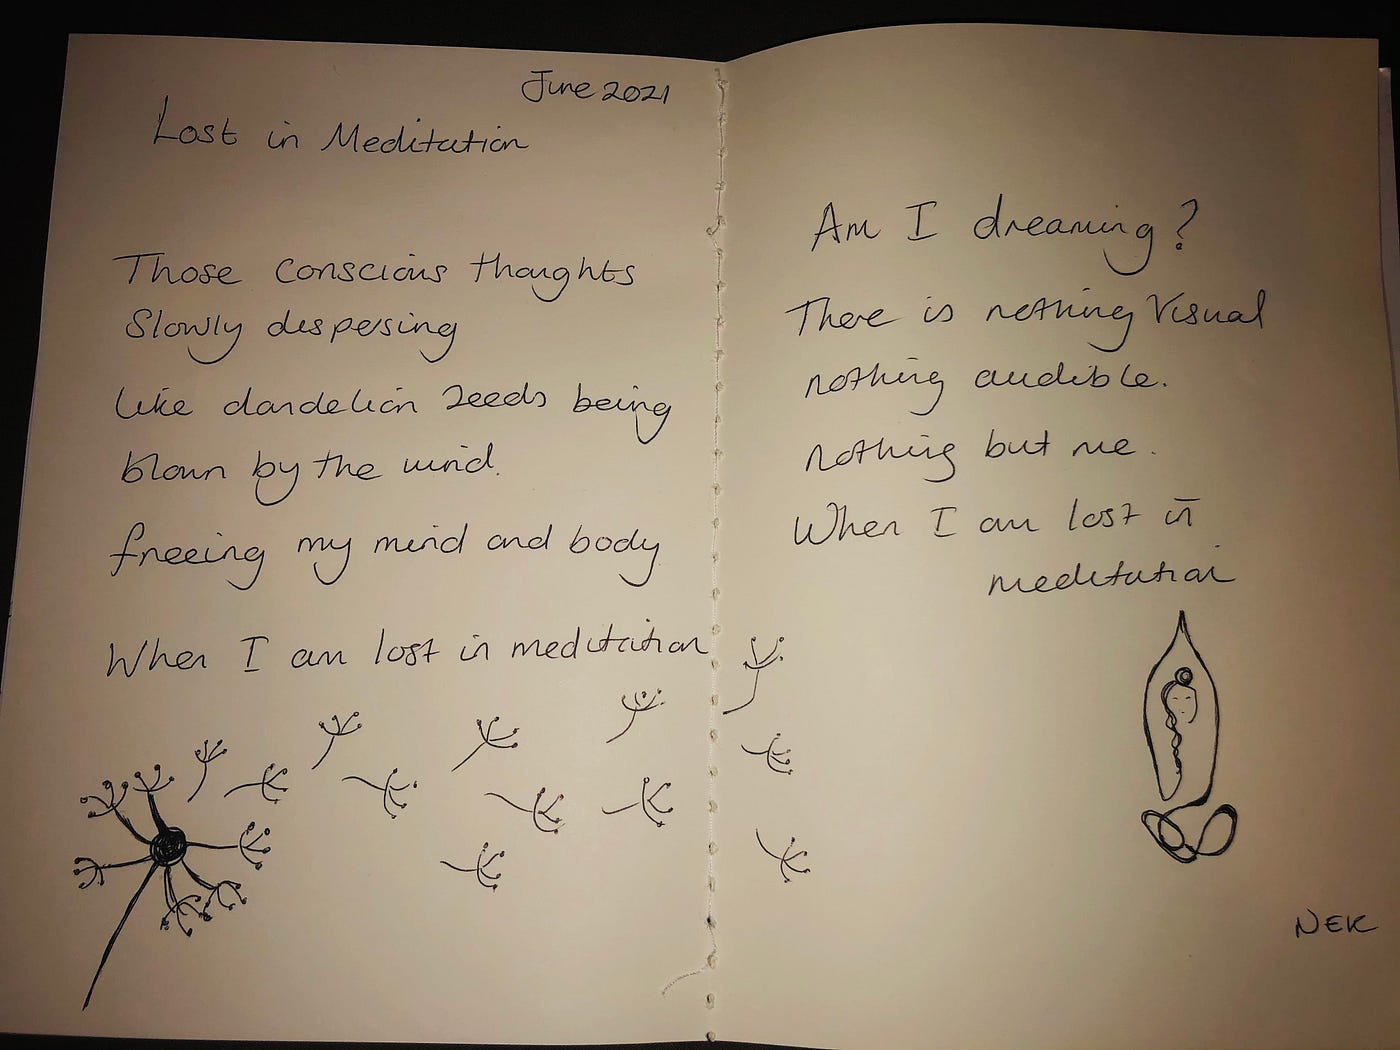 June 2021
Lost in Meditation
Those conscious thoughts
Slowly dispersing
like dandelion seeds being
blown by the wind.
freeing my mind and body
When I am lost in meditation
Am I dreaming?
There is nothing Visual
nothing audible.
nothing but me.
When I am lost in
meditation
NEK